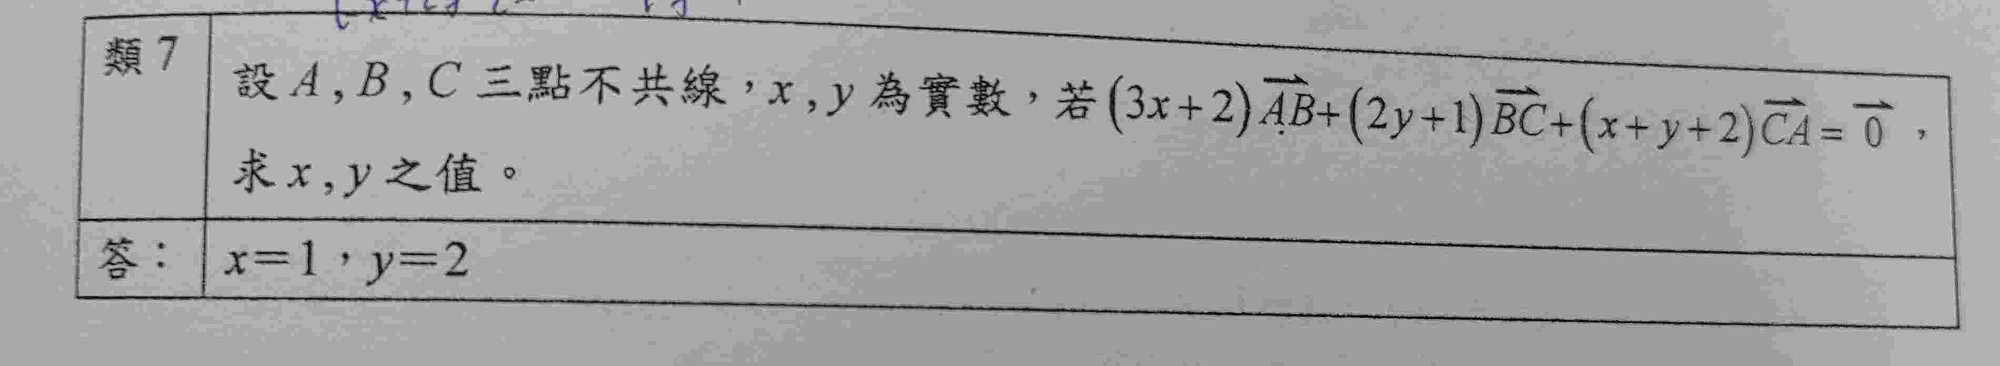 類7
設A,B,C三點不共線,x,y為實數,若(3x+2)\overrightarrow{AB}+(2y+1)\overrightarrow{BC}+(x+y+2)\overrightarrow{CA}=\overrightarrow{0},
求x,y之值。
答: x=1,y=2